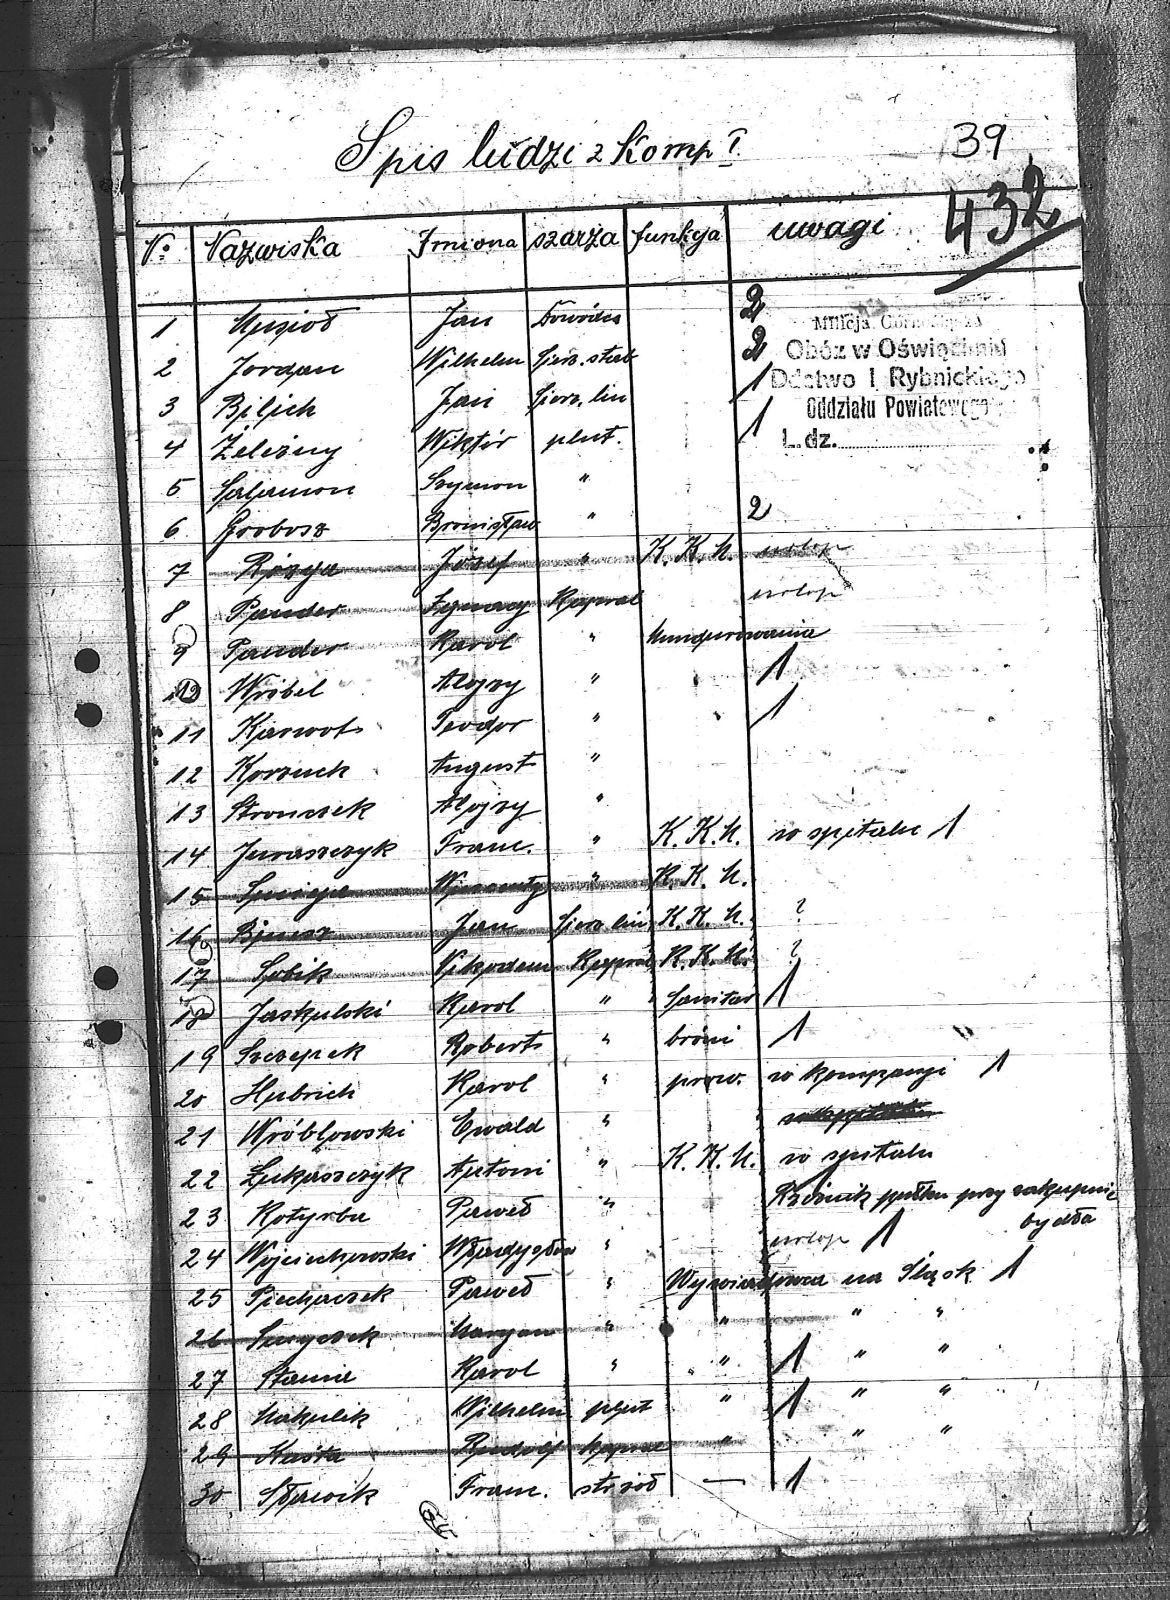 39
Spis ludzi z Komp I
432
No Nazwiska Imiona szarża funkcja uwagi
1 Jan Dowódca 2
Milicja Górnośląska
2 Jordan Wilhelm sierż. sztab 2
Obóz w Oświęcimiu
Ddztwo I Rybnickiego
3 Jan sierż. lin 1
Oddziału Powiatowego
4 Żelezny Wiktór plut. 1
L.dz.
5 Salamon Szymon "
6 Grobosz Bronisław " 2
7 Józef " K. K. U. urlop
8 Pander Ignacy Kapral urlop
9 Pander Karol " Mundurowania
10 Wróbel Alojzy " 1
11 Karwot Teodor " 1
12 Korzuch August "
13 Stronczek Alojzy "
14 Juraszczyk Franc. " K. K. U. w szpitalu 1
15 " K. K. U.
16 Jan sierż lin K. K. U. ?
17 Sobik Nikodem Kapral K. K. U. ?
18 Jaskulski Karol " Sanitar 1
19 Szczepek Robert " broni 1
20 Hubrich Karol " prow. w kompanji 1
21 Wróblowski Ewald "
22 Łukaszczyk Antoni " K. K. U. w szpitalu
23 Kotyrba Paweł " Rzeźnik pułku przy zakupnie
bydła
24 Wojciechowski Władysław " urlop 1
25 Piechaczek Paweł " Wywiadowca na Śląsk 1
26 Maryan " " " "
27 Stania Karol " " 1 " "
28 Makulik Wilhelm plut " 1 " "
29 Rudolf Kapral " " "
30 Sławik Franc. st. żoł — 1